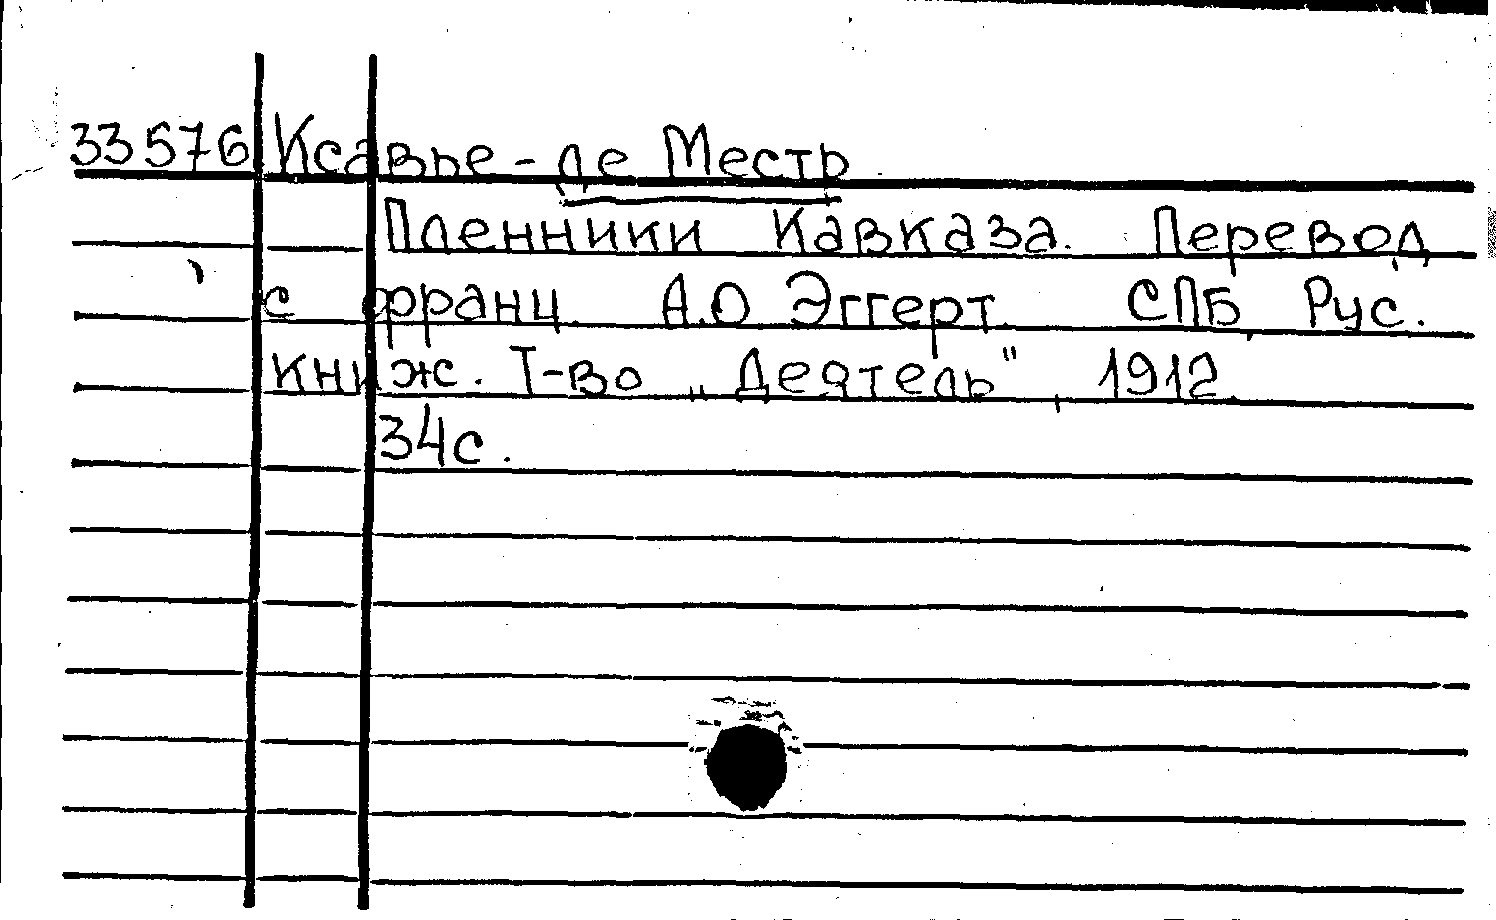 33576 Ксавье-де Местр
Пленники Кавказа. Перевод
с франц. А.О Эггерт. СПБ, Рус.
книж. Т-во „Деятель", 1912.
34с.